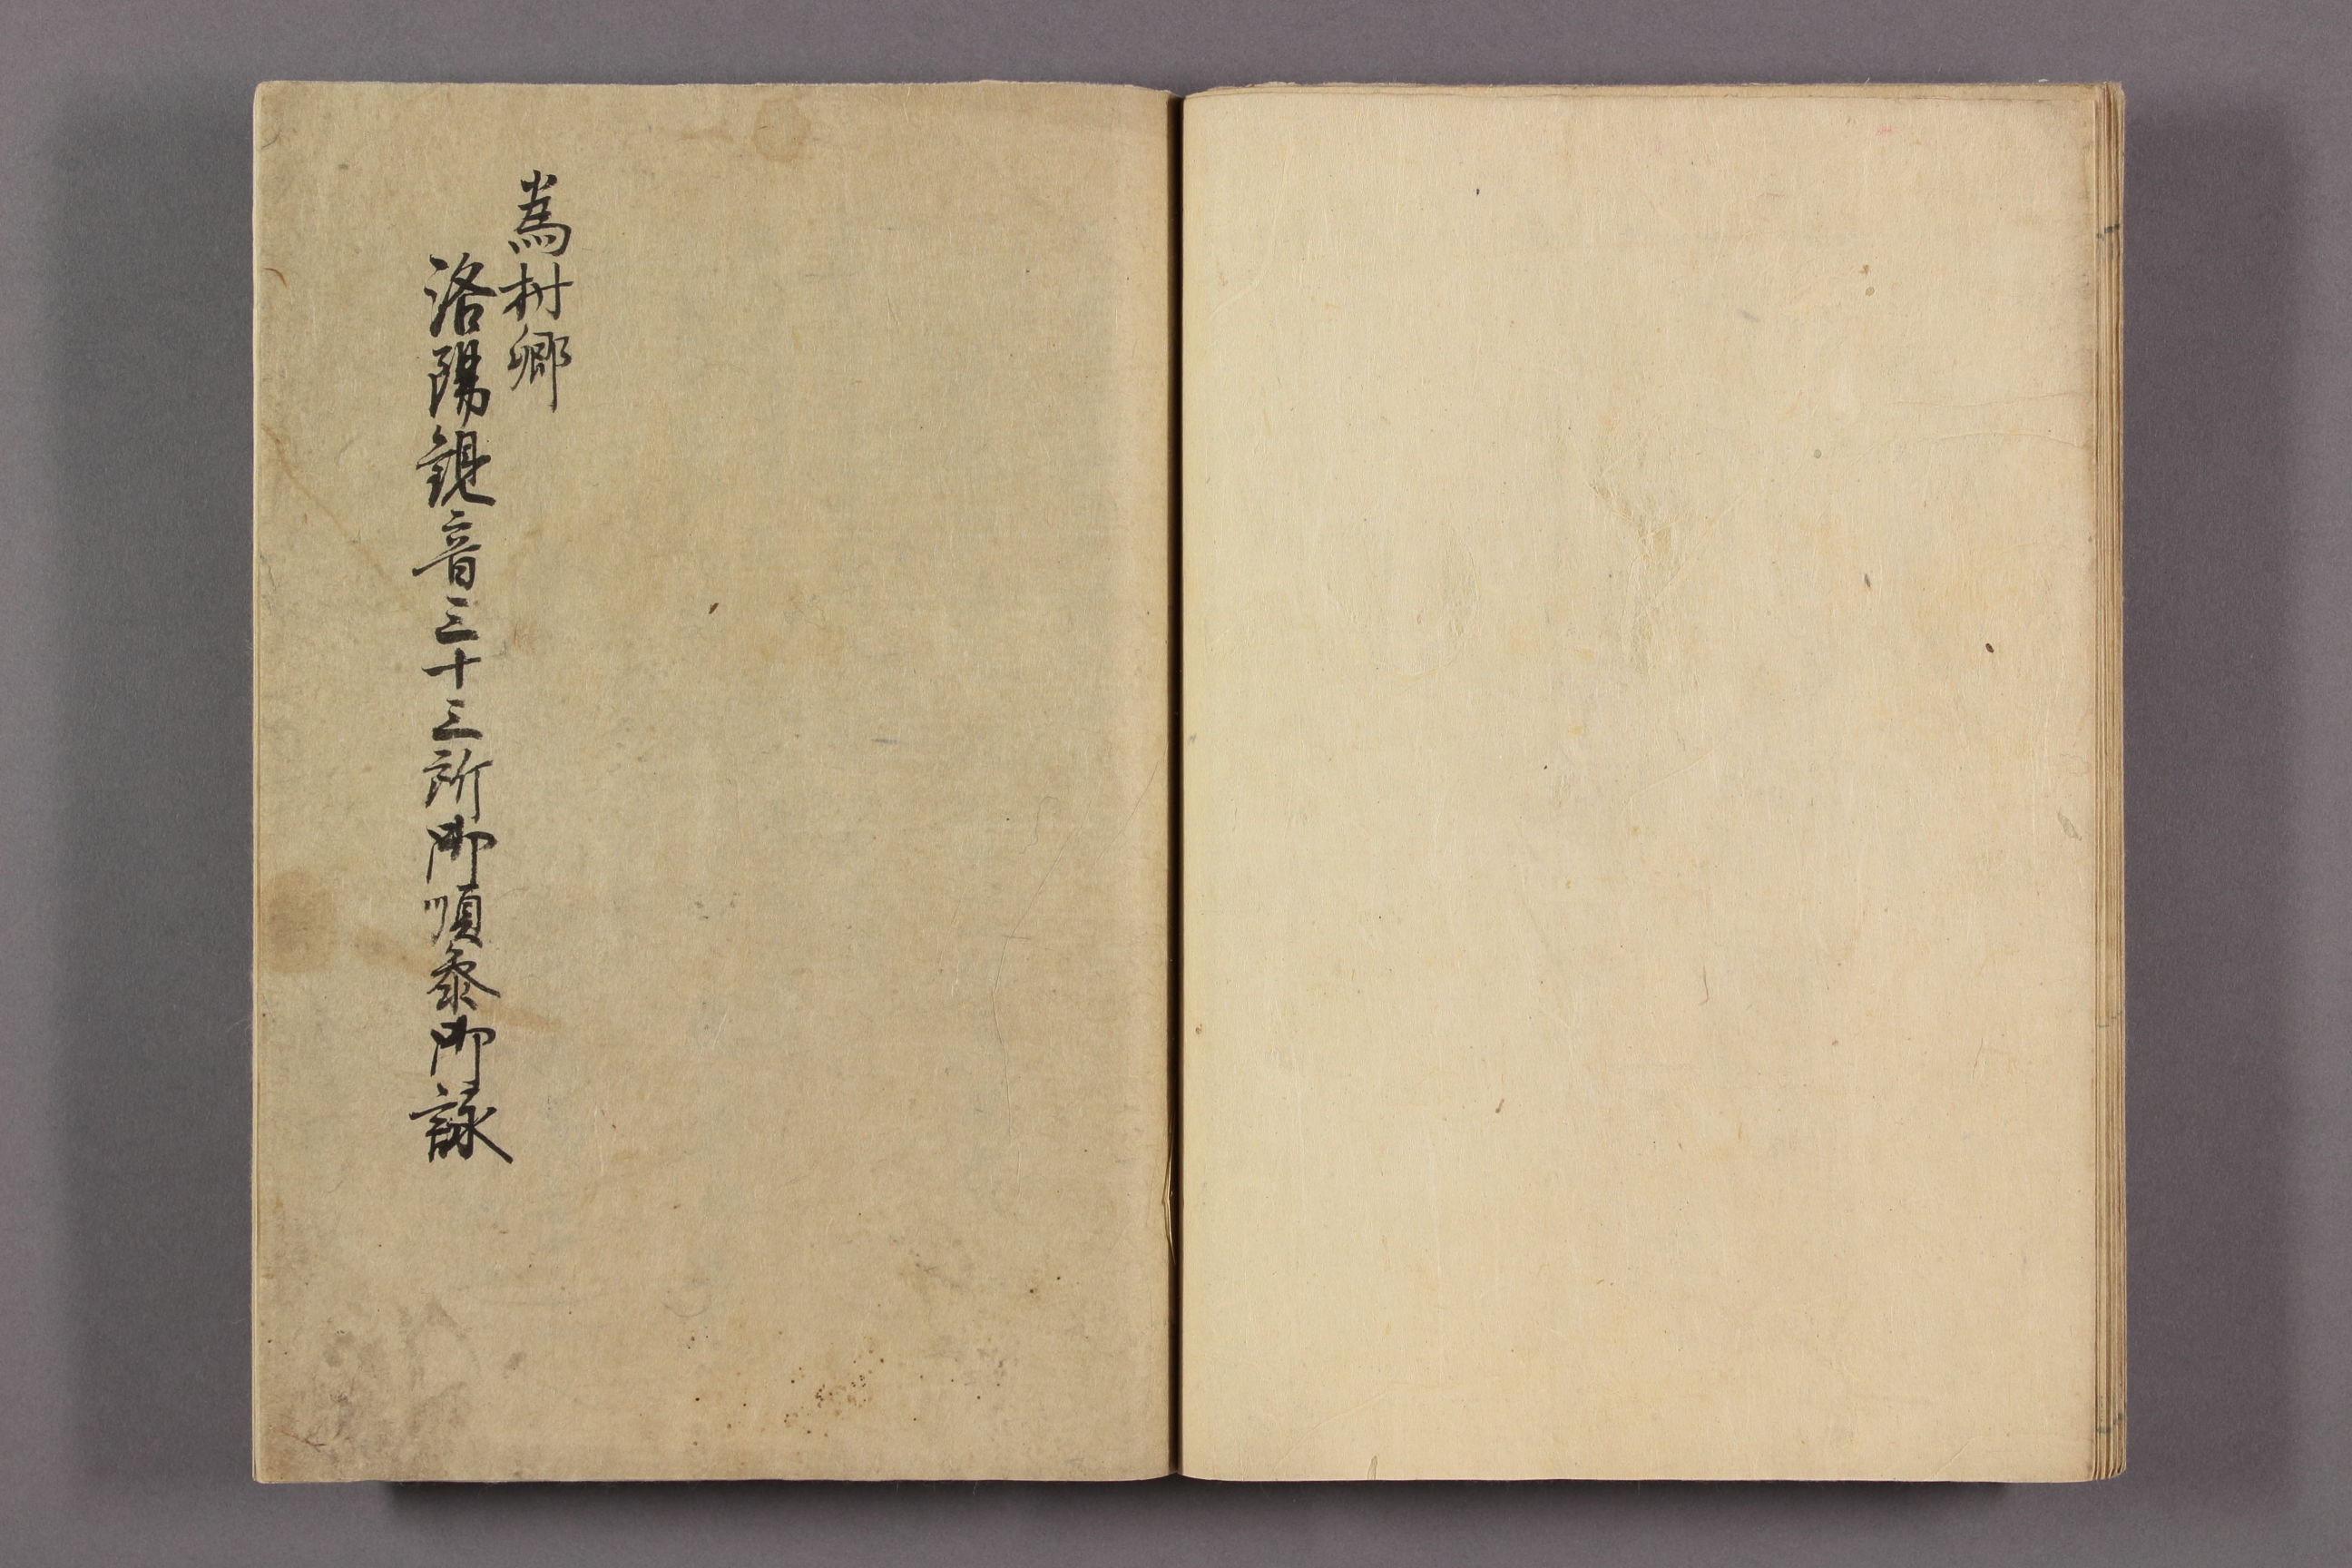 為村卿
洛陽観音三十三所御順參御詠